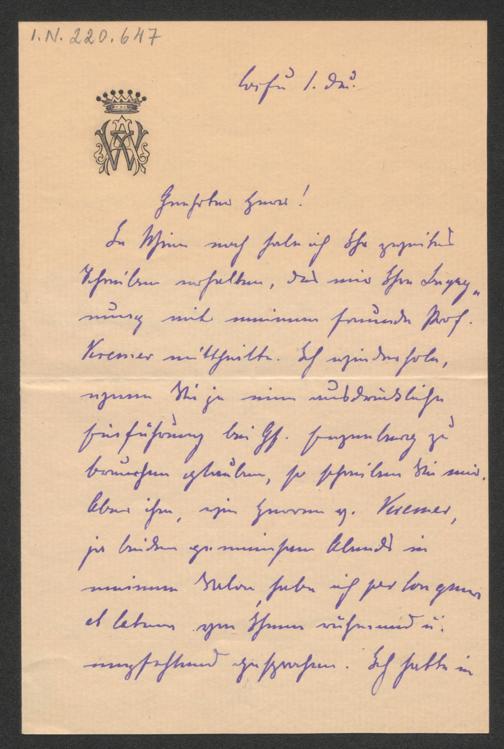 I.N. 220.647
Corfu 1. Dez.
Geehrter Herr!
In Wien noch habe ich Ihr geehrtes
Schreiben erhalten, das mir Ihre Begeg-
nung mit meinem Freunde Prof.
Kremer mittheilte. Ich wiederhole,
wenn Sie je eine ausdrückliche
Einführung bei Gf. zu
brauchen glauben, so schreiben Sie mir.
Aber ihm, wie Herrn v. Kremer,
je beiden gemeinsam Abends in
meinem Salon, habe ich per longum
et latum von Ihnen rühmend u.
empfehlend gesprochen. Ich hatte in